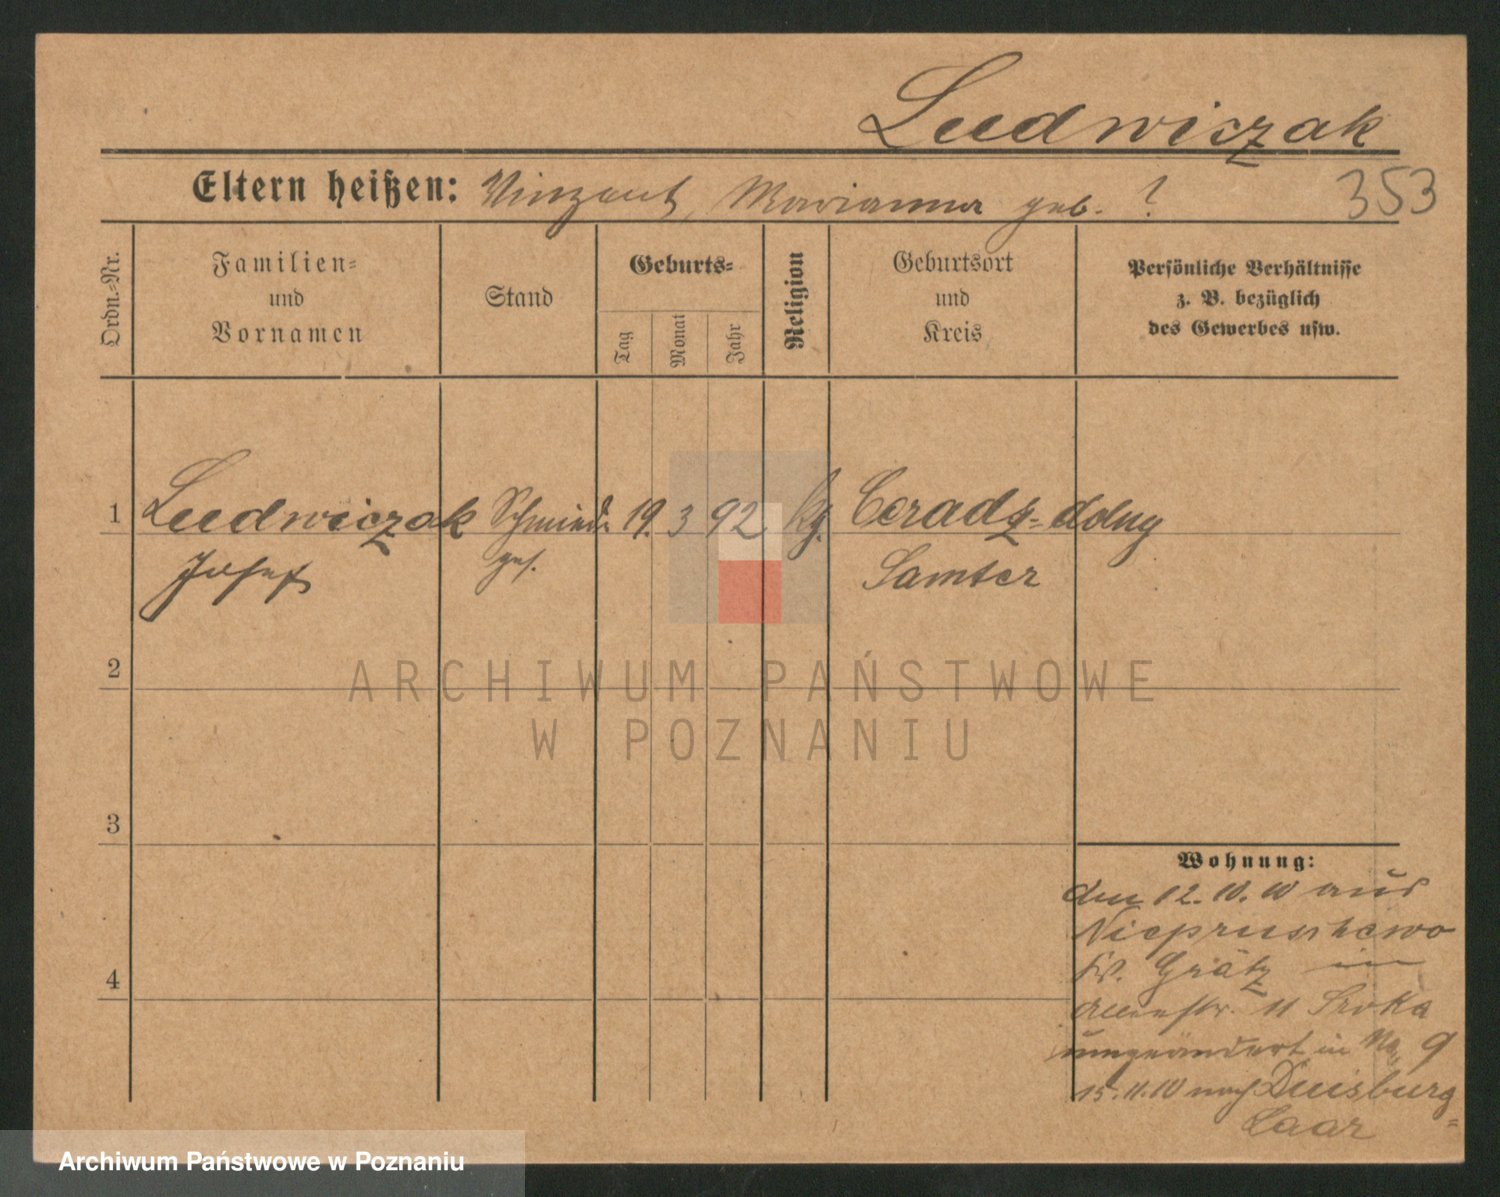 Ludwiczak
Eltern heißen: Vinzent, Marianna geb. ?
353
Ordn.-Nr.
Familien-
und
Vornamen
Stand
Geburts-
Tag
Monat
Jahr
Religion
Geburtsort
und
Kreis
Persönliche Verhältnisse
z. B. bezüglich
des Gewerbes usw.
1 Ludwiczak Schmiede 19. 3 92 kg. Ceradz-dolny
Josef ges. Samter
2
3
4
ARCHIWUM PAŃSTWOWE
W POZNANIU
Wohnung:
den 12.10.10 aus
Niepruszewo
Kr. Grätz in
11 Sroka
umgeändert in No. 9
15.11.10 nach Duisburg-
Laar
Archiwum Państwowe w Poznaniu